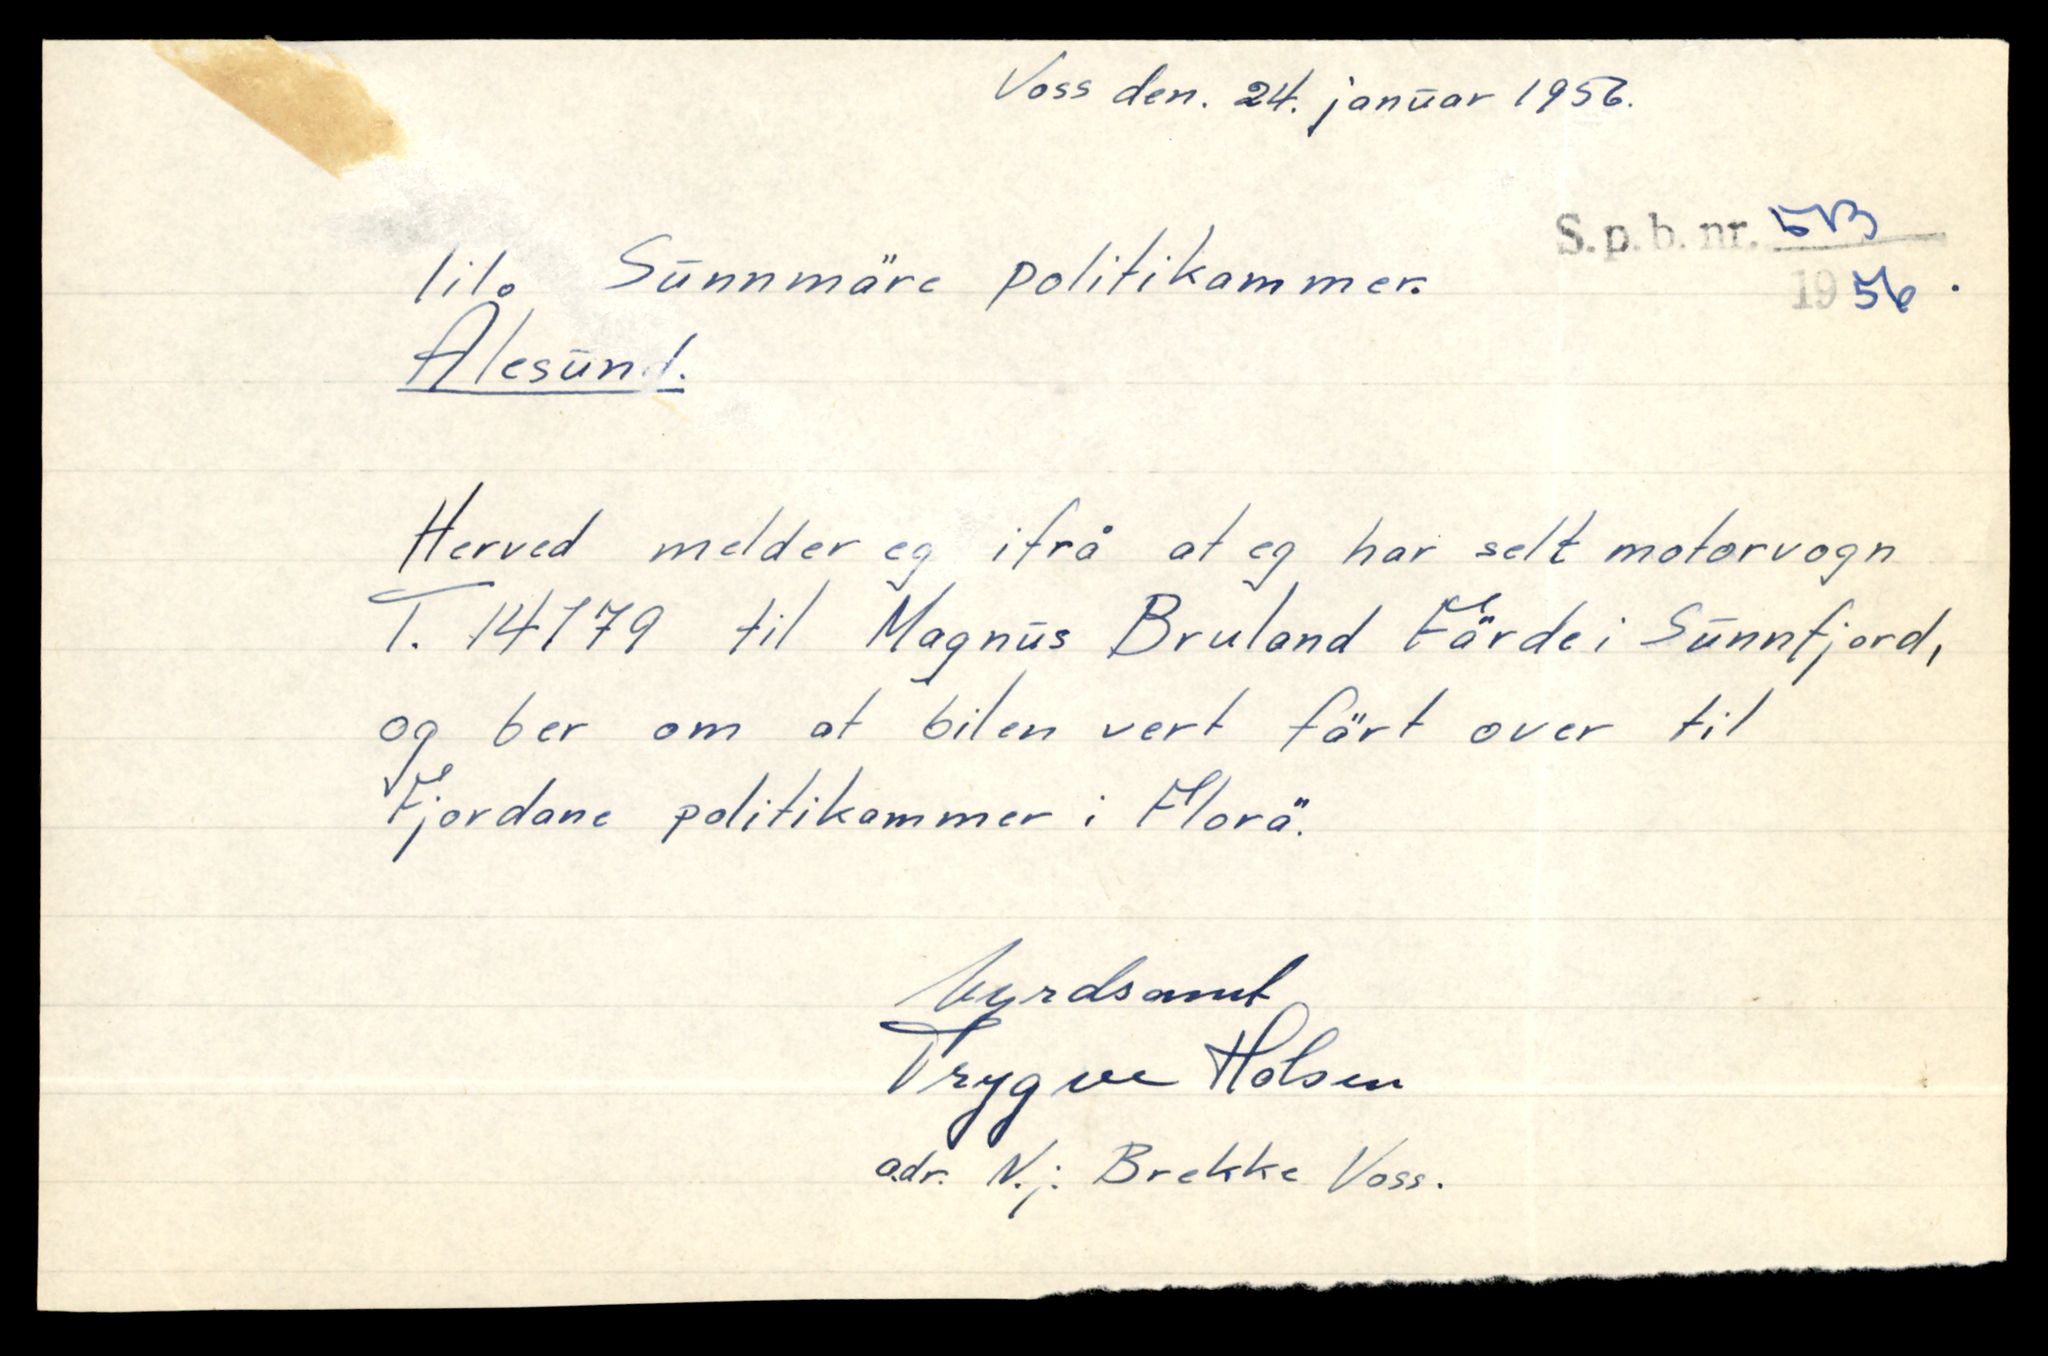 Voss den. 24. januar 1956.
S.p.b. nr. 513
1956.
Til. Sunnmäre politikammer.
Ålesund.
Herved melder eg ifrå at eg har selt motorvogn
T. 14179 til Magnus Bruland Färde i Sunnfjord,
og ber om at bilen vert färt over til
Fjordane politikammer i Florä.
Vyrdsamt
Trygve Holsen
adr. N.j: Brekke Voss.